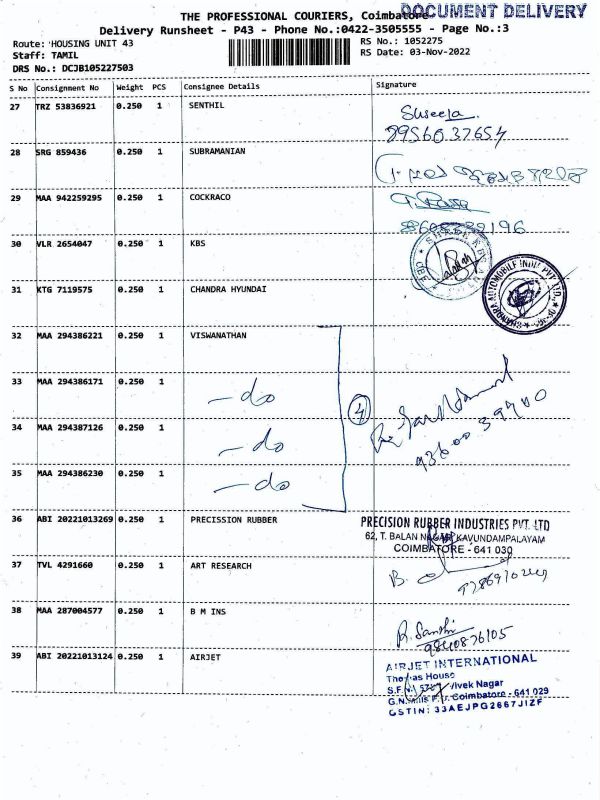 THE PROFESSIONAL COURIERS, Coimbatore
DOCUMENT DELIVERY
Delivery Runsheet - P43 - Phone No.:0422-3505555 - Page No.:3
Route: HOUSING UNIT 43
RS No.: 1052275
Staff: TAMIL
RS Date: 03-Nov-2022
DRS No.: DCJB105227503
S No Consignment No Weight PCS Consignee Details Signature
27 TRZ 53836921 0.250 1 SENTHIL
28 SRG 859436 0.250 1 SUBRAMANIAN
29 MAA 942259295 0.250 1 COCKRACO
30 VLR 2654047 0.250 1 KBS
31 KTG 7119575 0.250 1 CHANDRA HYUNDAI
CHANDRA AUTOMOBILE INDIA PVT. LTD.
32 MAA 294386221 0.250 1 VISWANATHAN
33 MAA 294386171 0.250 1 - do
4
34 MAA 294387126 0.250 1 - do
35 MAA 294386230 0.250 1 - do
36 ABI 20221013269 0.250 1 PRECISSION RUBBER
PRECISION RUBBER INDUSTRIES PVT. LTD
62, T. BALAN NAGAR, KAVUNDAMPALAYAM
COIMBATORE - 641 030
37 TVL 4291660 0.250 1 ART RESEARCH
38 MAA 287004577 0.250 1 B M INS
R. Santhi
9840876105
39 ABI 20221013124 0.250 1 AIRJET
AIRJET INTERNATIONAL
Thomas House
Vivek Nagar
Coimbatore - 641 029
GSTIN: 33AEJPG2667J1ZF